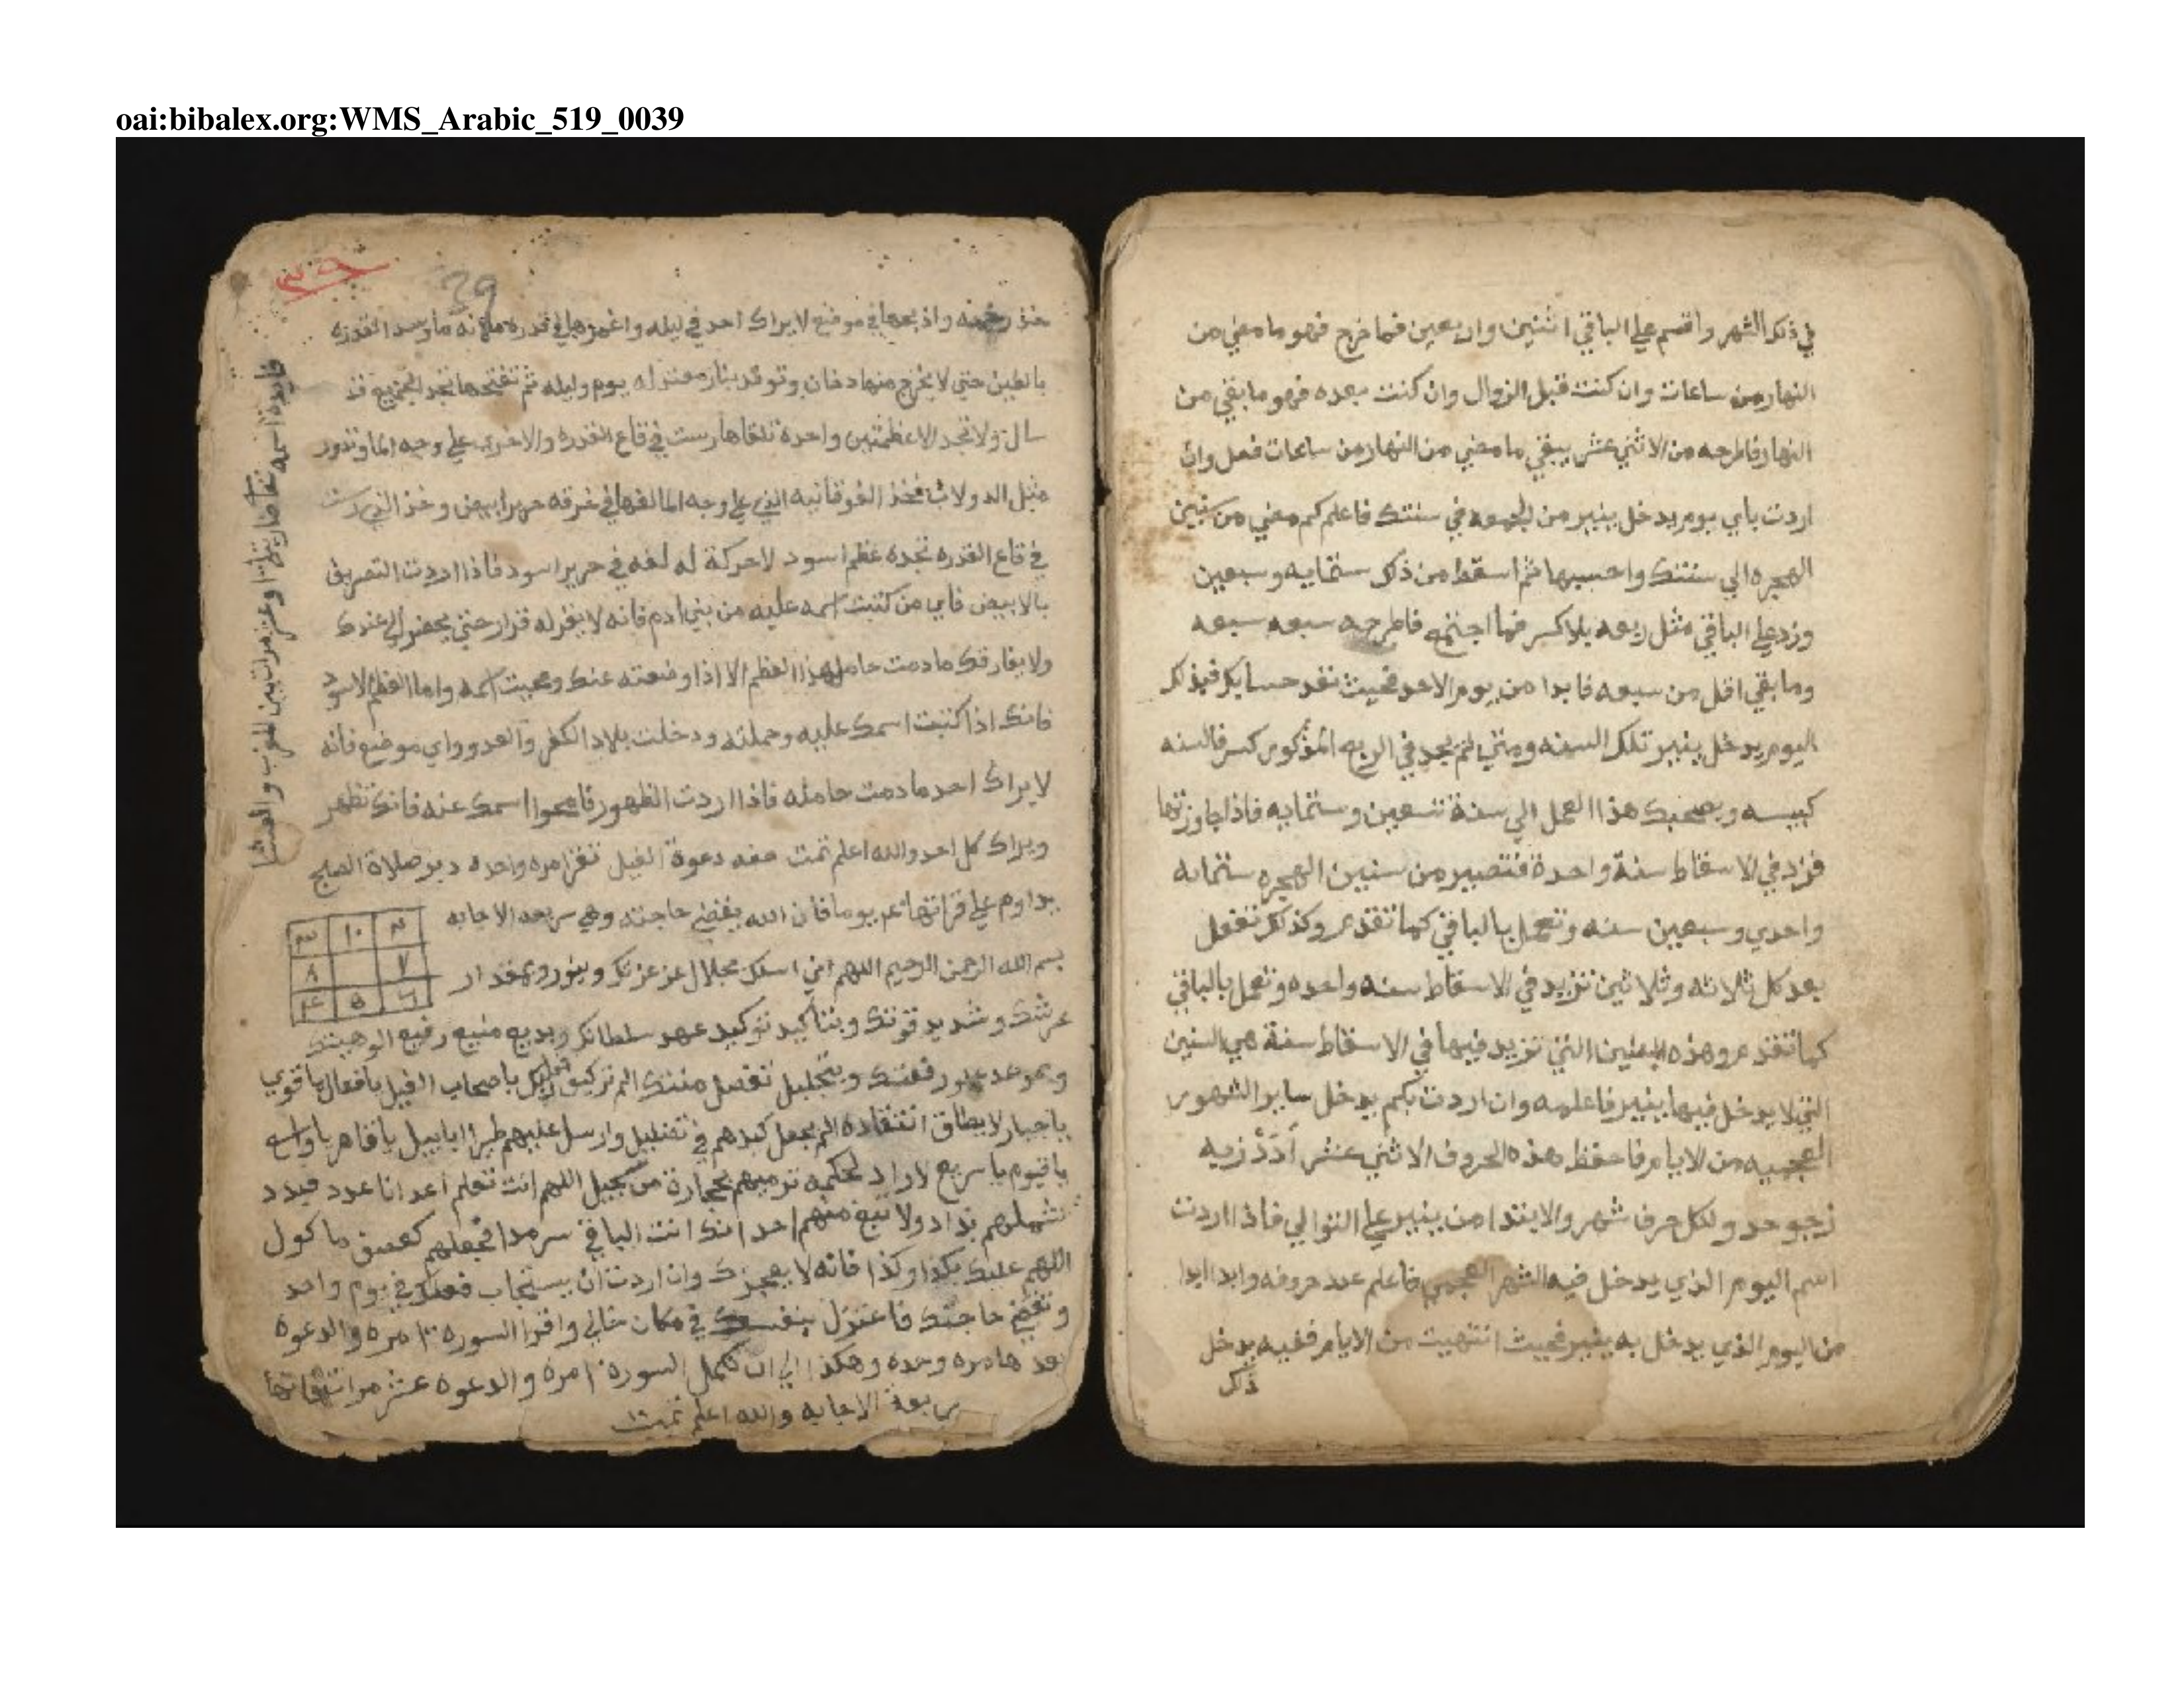 oai:bibalex.org:WMS_Arabic_519_0039
في ذلك الشهر واقسم علي الباقي اثنين واربعين فما خرج فهو ما مضي من
النهار من ساعات وان كنت قبل الزوال وان كنت بعده فهو ما بقي من
النهار فاطرحه من الاثني عشر يبقي ما مضي من النهار من ساعات فعل وان
اردت باي يوم يدخل ينير من في سنتك فاعلم كم مضي من سنين
الهجره الي سنتك واحسبها ثم اسقط من ذلك ستمايه وسبعين
وزد علي الباقي مثل ربعه بلا كسر فما اجتمع فاطرحه سبعه سبعه
وما بقي اقل من سبعه فابدا من يوم الاحد فحيث نفد حسابك فبذلك
اليوم يدخل ينير تلك السنه ومتي لم يجد في الربع المذكور كسر فالسنه
كبيسه ويصحبك هذا العمل الي سنة تسعين وستمايه فاذا جاوزتها
فزد في الاسقاط سنة واحدة فتصير من سنين الهجره ستمايه
واحدي وسبعين سنه وتعمل بالباقي كما تقدم وكذلك تفعل
بعد كل ثلاثه وثلاثين تزيد في الاسقاط سنه واحده وتعمل بالباقي
كما تقدم وهذه السنين التي تزيد فيها في الاسقاط سنة هي السنين
التي لا يدخل فيها ينير فاعلمه وان اردت بكم يدخل ساير الشهور
العجميه من الايام فاحفظ هذه الحروف الاثني عشر ادد زبه
زجوحد ولكل حرف شهر والابتدا من ينير علي التوالي فاذا اردت
اسم اليوم الذي يدخل فيه الشهر العجمي فاعلم عدد حروفه وابدا ابدا
من اليوم الذي يدخل به ينير فحيث انتهيت من الايام ففيه يدخل
ذلك
39
٣٩
خذ رخمه واذبحها في موضع لا يراك احد في ليله واغمرها في قدره ملانه ما وسد القدره
بالطين حتي لا يخرج منها دخان وتوقد بنار معتدله يوم وليله ثم تفتحها تجد الجميع قد
سال ولا تجد الا عظمتين واحدة تلقاها رست في قاع القدره والاخري علي وجه الما وتدور
مثل الدولاب فخذ الفوقانيه الذي علي وجه الما لفها في خرقه حرير ابيض وخذ الذي رست
في قاع القدره تجده عظم اسود لا حركة له لفه في حرير اسود فاذا اردت التصريف
بالابيض فاي من كتبت اسمه عليه من بني ادم فانه لا يقر له قرار حتي يحضر الي عندك
ولا يفارقك ما دمت حامل هذا العظم الا اذا وضعته عنك ومحيت اسمه واما العظم الاسود
فانك اذا كتبت اسمك عليه وحملته ودخلت بلاد الكفر والعدو واي موضع فانه
لا يراك احد ما دمت حامله فاذا اردت الظهور فامحوا اسمك عنه فانك تظهر
ويراك كل احد والله اعلم تمت صفه دعوة الفيل تقرا مره واحده دبر صلاة الصبح
يداوم علي قراتها يوما فان الله يقضي حاجته وهي سريعه الاجابه
بسم الله الرحمن الرحيم اللهم اني اسلك بجلال عز عزتك وبنور وبمقدار
عرشك وشديد قوتك وبتاكيد توكيد عهد سلطانك وبديع منيع رفيع الوهيتك
رفعتك وبتجليل تفضل منتك الم تر كيف فعل ربك باصحاب الفيل يا فعال يا قوي
يا جبار لا يطاق انتقامه الم يجعل كيدهم في تضليل وارسل عليهم طيرا ابابيل يا قاهر
يا قيوم يا سريع لا راد لحكمه ترميهم بحجارة من سجيل اللهم انت تعلم اعدانا عدد فبدد
شملهم بداد ولا تبق منهم احد انك انت الباقي سرمدا فجعلهم كعصف ماكول
اللهم عليك بكذا وكذا فانه لا يعجزك وان اردت ان يستجاب في يوم واحد
وتقضي حاجتك فاعتزل بنفسك في مكان خالي واقرا السوره ١٠ مره والدعوة
بعدها مره وحده وهكذا الي ان تكمل السورة مرة والدعوه عشر مرات فانها
سريعة الاجابه والله اعلم تمت
٣ ١٠ ٣
٨ ٧
٤ ٥ ٦
فايدة اسمه وعشر مرات بين المغرب والعشا